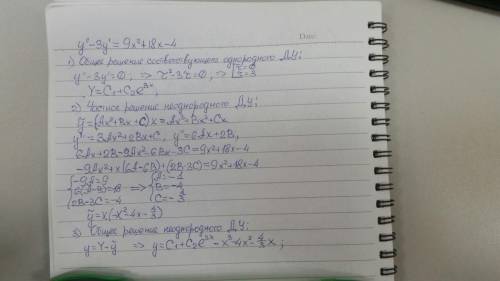 Date:
y″-3y′=9x²+18x-4
1) Общее решение соответствующего однородного Д.У:
y″-3y′=0; => τ²-3τ=0; => [τ=0 τ=3
Y=C₁+C₂e³ˣ
2) Частное решение неоднородного Д.У:
ỹ=(Ax²+Bx+C)x=Ax³+Bx²+Cx
y′=3Ax²+2Bx+C, y″=6Ax+2B,
6Ax+2B-9Ax²-6Bx-3C=9x²+18x-4
-9Ax²+x(6A-6B)+(2B-3C)=9x²+18x-4
{-9A=9 {A=-1
6(A-B)=18 => B=-4
2B-3C=-4 C=-4/3
ỹ=x(-x²-4x-4/3)
3) Общее решение неоднородного Д.У:
y=Y-ỹ => y=C₁+C₂e³ˣ-x³-4x²-4/3x;